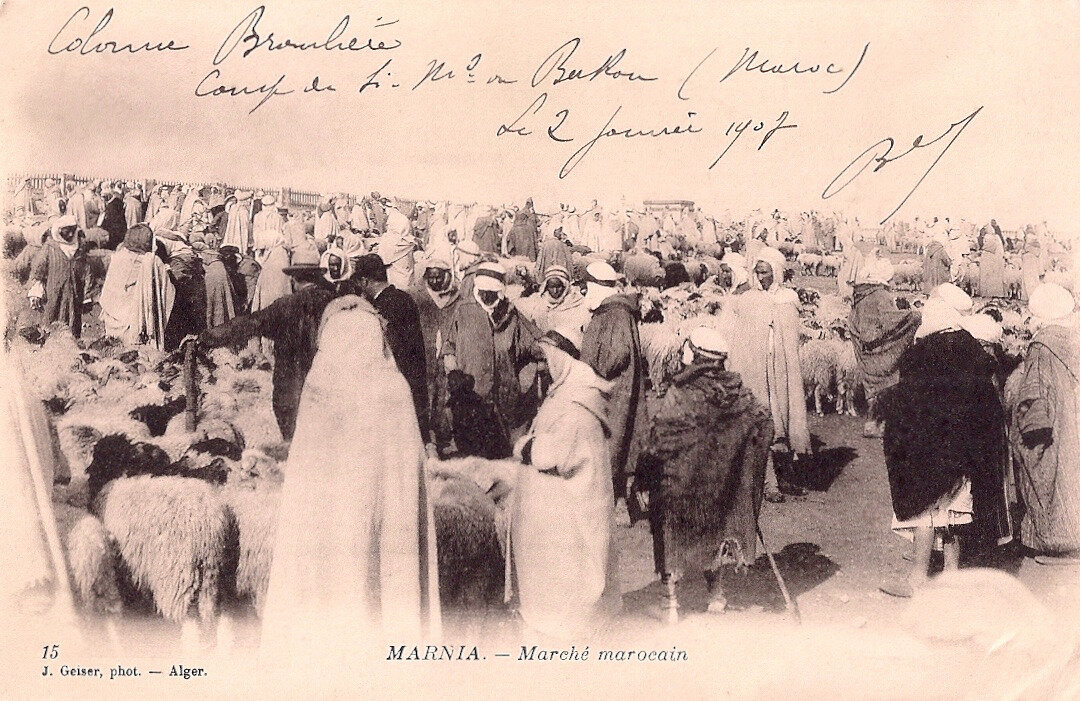 Colonne Bronlière
Camp de Si- Md ou Berkan (Maroc)
Le 2 Janvier 1907
15
MARNIA. — Marché marocain
J. Geiser, phot. — Alger.